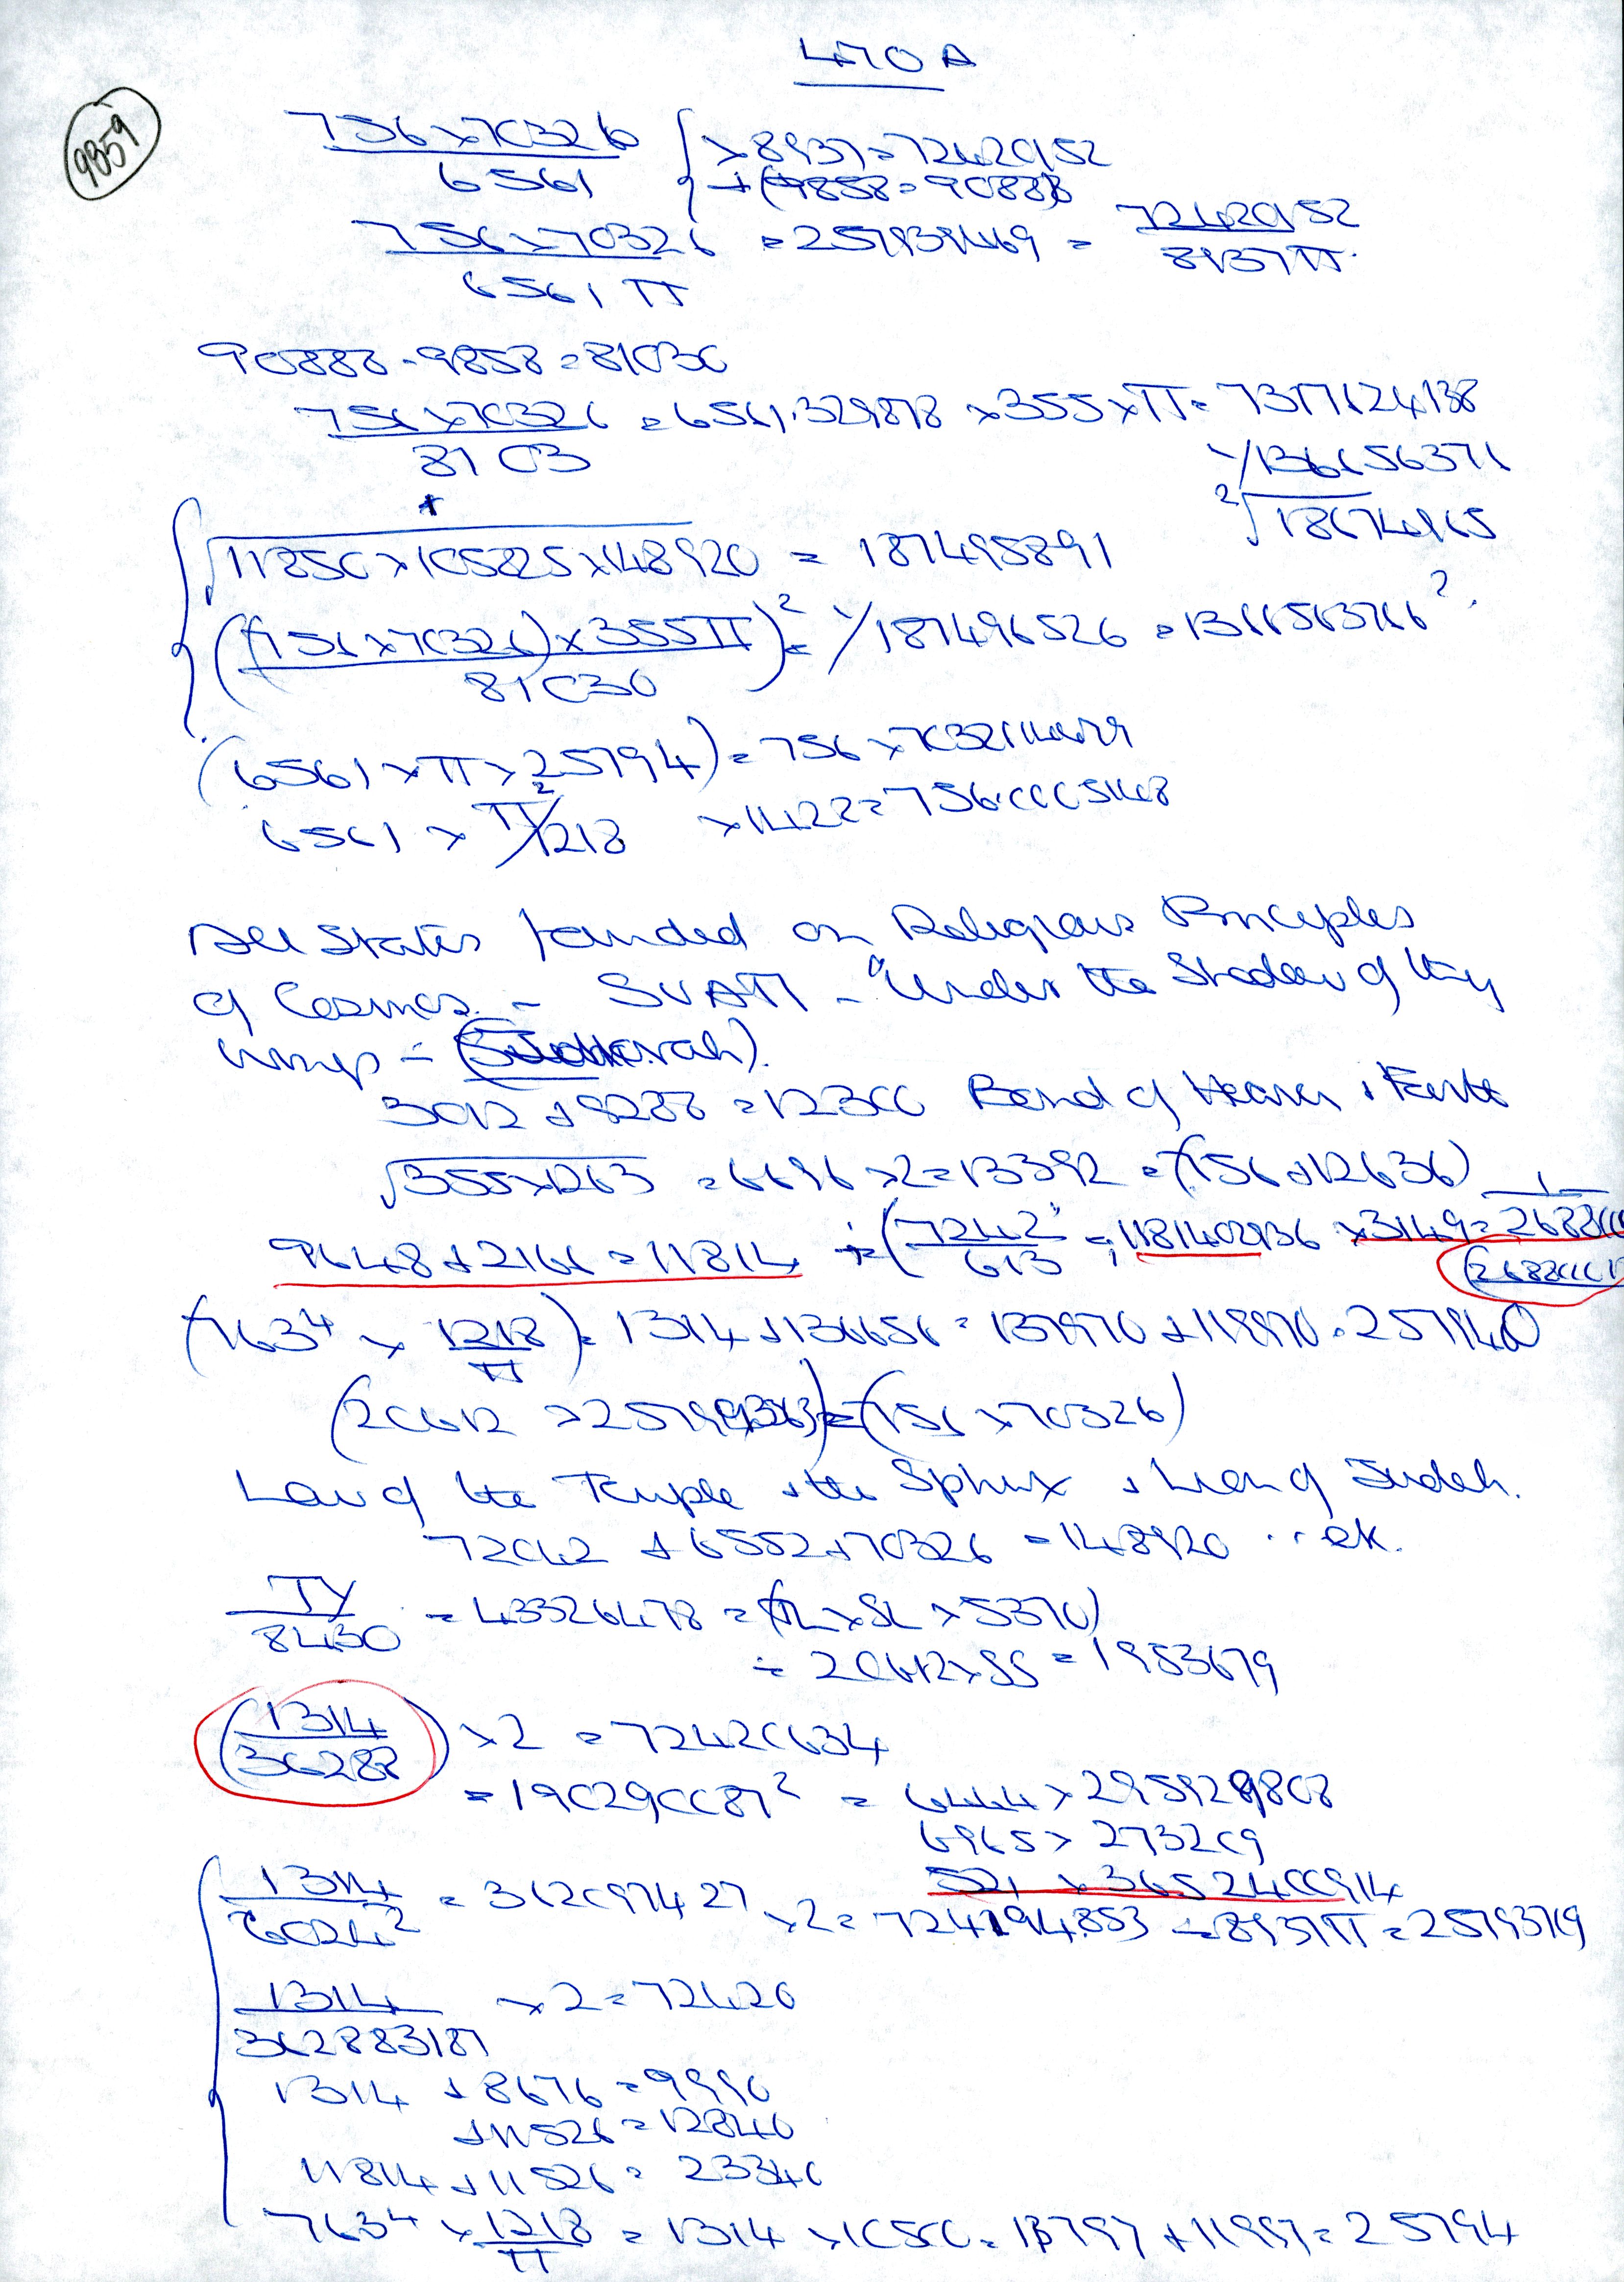 470 A
9859
756 × 70326 / 6561 { × 8937 = 72420152
+ (9858 = 90888)
756 × 70326 / 6561 π = 257939469 = 72420152 / 8937π
90888 - 9858 = 81030
756 × 70326 / 8103 = 6561.329878 × 355 × π = 7317124138
1/136656371
²√18674965
√11850 × 105825 × 148920 = 187495891
((756 × 70326) × 355π / 81030)² = 1/187496526 = 1366563766²
(6561 × π × 25794) = 756 ×
6561 × π²/1218 × 1422 = 756.00051148
All States founded on Religious Principles
of Cosmos. - SVATI - "Under the Shadow of thy
wings -
3012 + 9288 = 12300 Bond of Heaven + Earth
√355 × 1263 = 6696 × 2 = 13392 = (756 + 12636)
9648 + 2166 = 11814 ÷ (7242 / 613 = 1181402936 × 3149 =
(7634 × 1218 / π) = 1314 + 136656 = 137970 + 119970 = 257940
(20612 × ) = (756 × 70326)
Law of the Temple + the Sphinx + Lion of Judah.
72042 + 6552 + 70326 = 148920 .. ok.
TY / 8430 = 43326478 = (TL × SL × 5370)
÷ 20612 × SS = 1953679
(1314 / 36288) × 2 = 72420634
= 190290087² = 6444 × 295929808
6965 × 273269
521 × 3652400914
1314 / 6024² = 3620974 27 × 2 = 724194853 ÷ 8937π = 25793719
1314 / 362883187 × 2 = 72420
1314 + 8676 = 9990
+ 11526 = 12840
11814 + 11526 = 23340
7634 × 1218 / π = 1314 × 10500 = 13797 + 11997 = 25794